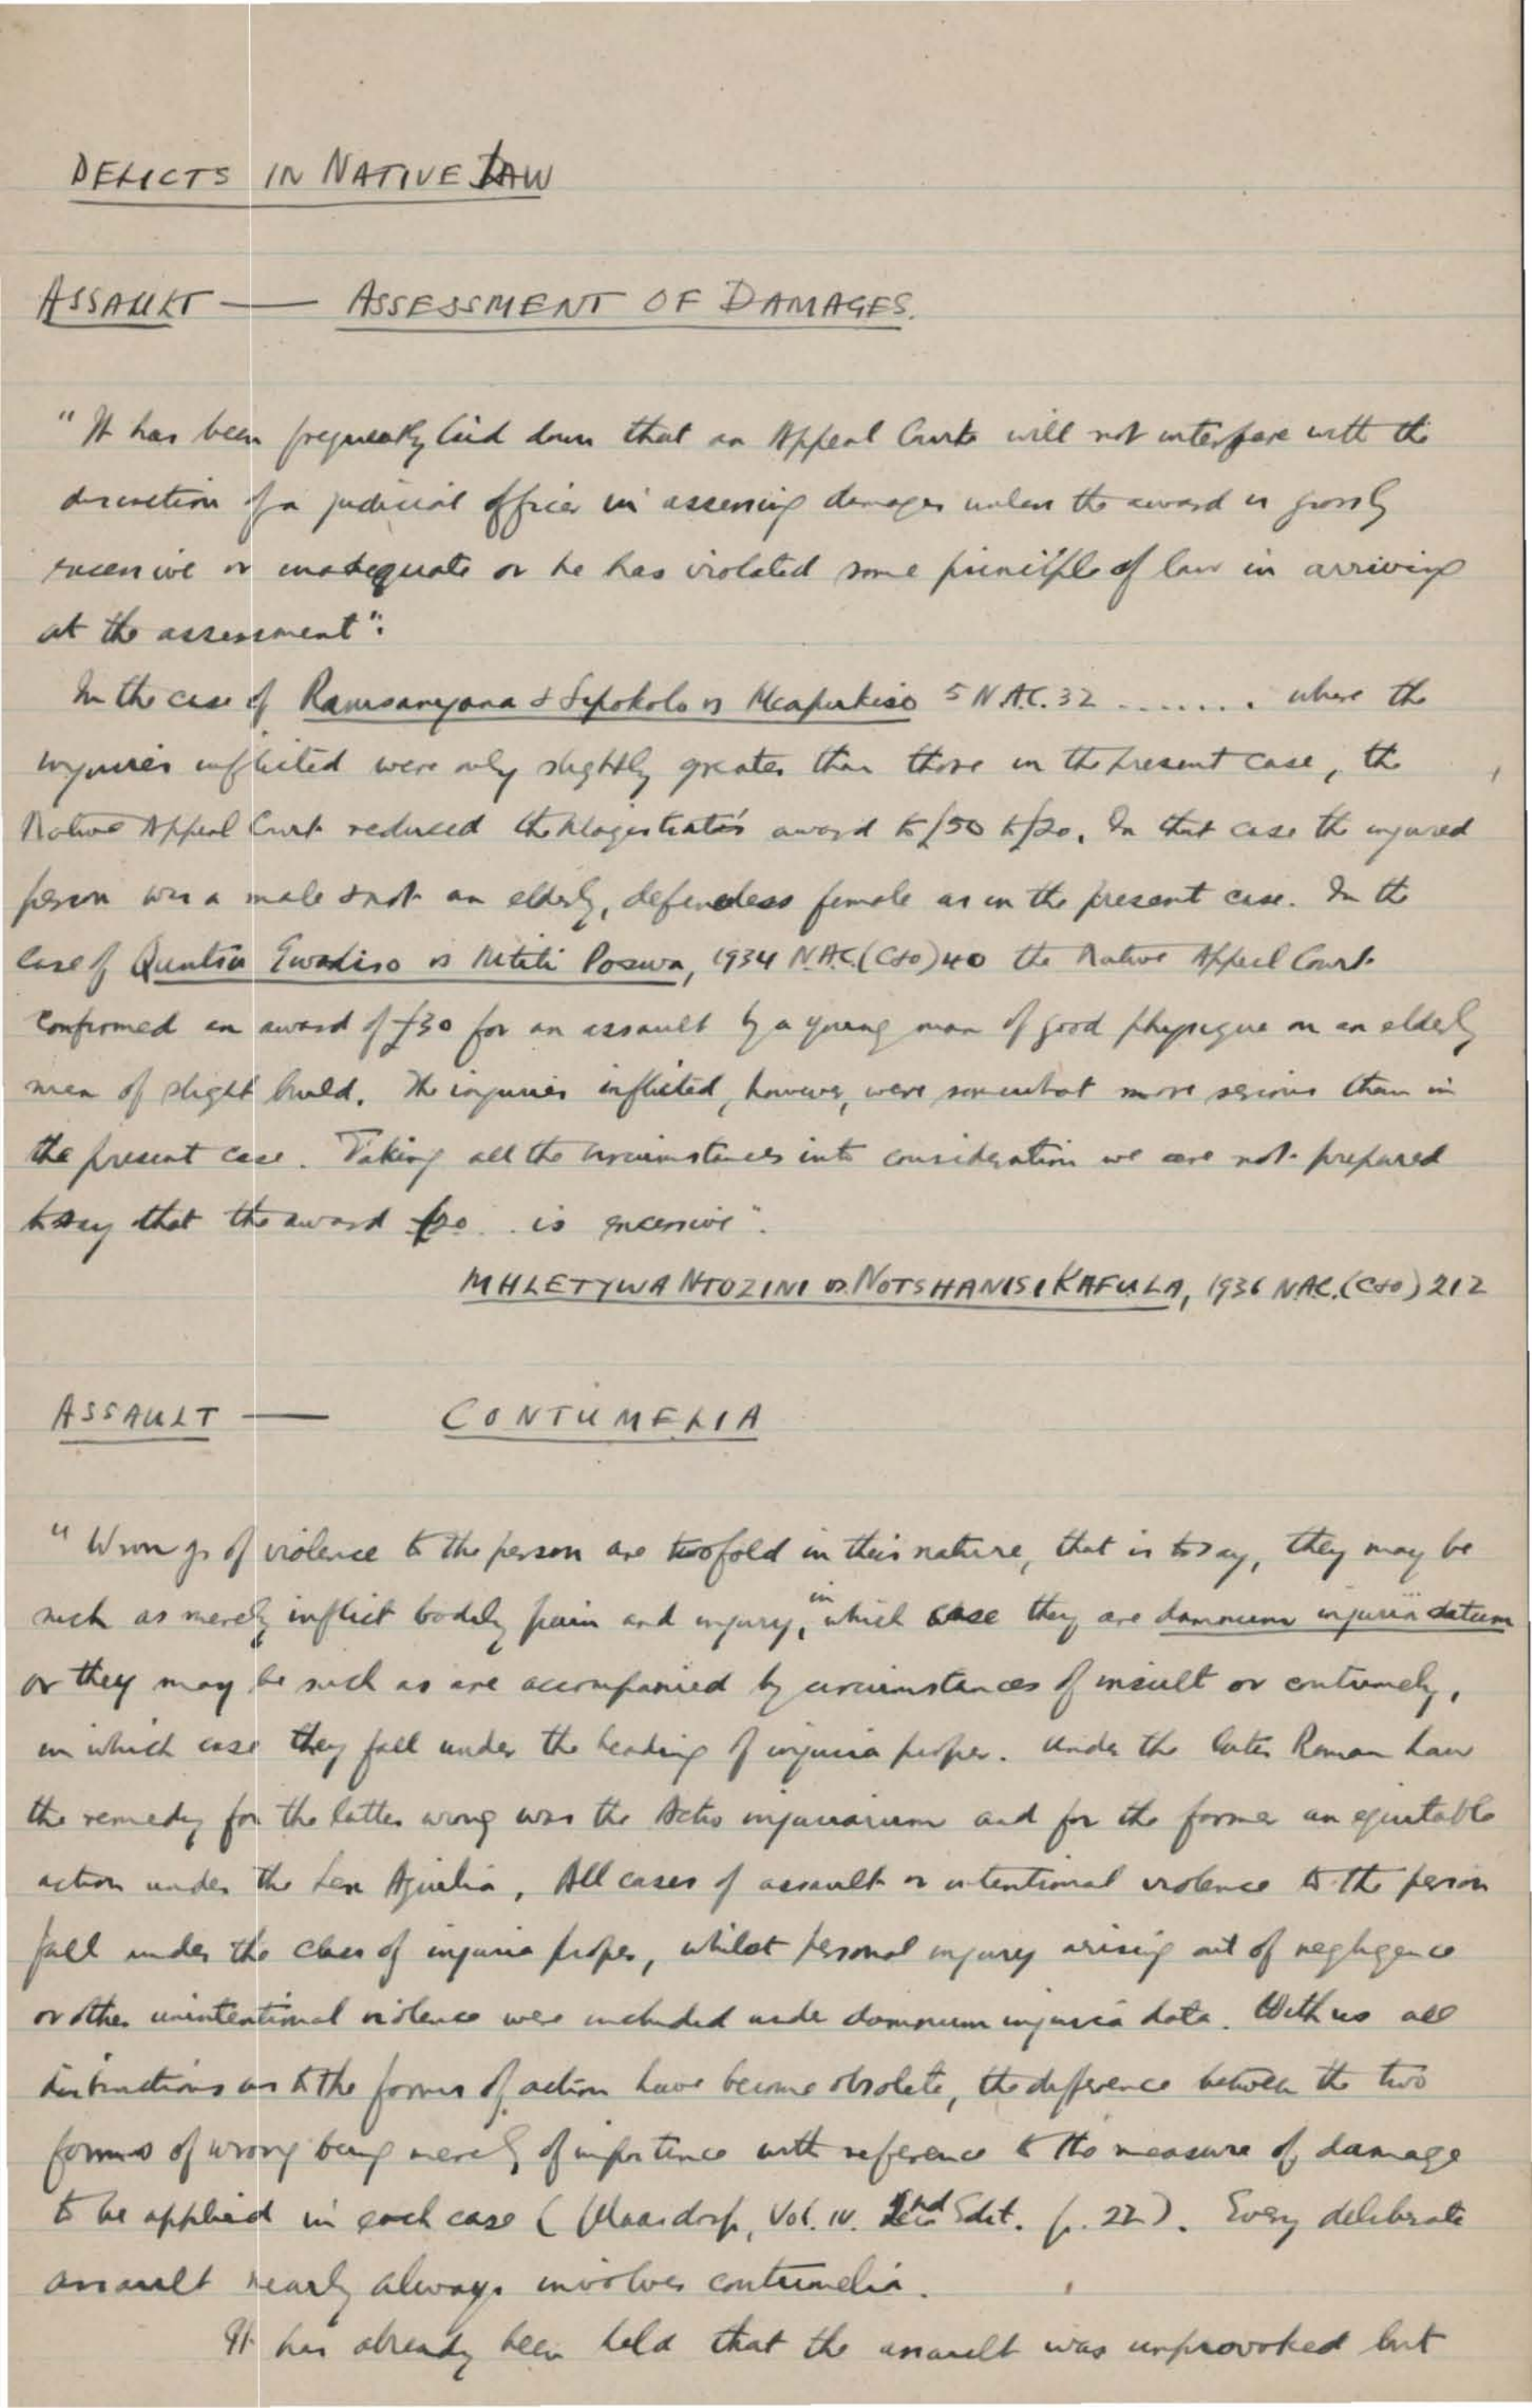 DELICTS IN NATIVE LAW
ASSAULT — ASSESSMENT OF DAMAGES.
"It has been frequently laid down that an Appeal Court will not interfere with the
discretion of a judicial officer in assessing damages unless the award is grossly
excessive or inadequate or he has violated some principle of law in arriving
at the assessment".
In the case of & vs 5 N.A.C. 32 ........ where the
injuries inflicted were only slightly greater than those in the present case, the
Native Appeal Court reduced the Magistrate's award to £50 to £20. In that case the injured
person was a male & not an elderly, defenceless female as in the present case. In the
case of vs Poswa, 1934 N.A.C. (C&O) 40 the Native Appeal Court
confirmed an award of £30 for an assault by a young man of good physique on an elderly
man of slight build. The injuries inflicted, however, were somewhat more serious than in
the present case. Taking all the circumstances into consideration we are not prepared
to say that the award £20 .. is excessive".
MHLETYWA NTOZINI vs. NOTSHANISI KAFULA, 1936 N.A.C. (C&O) 212
ASSAULT — CONTUMELIA
"Wrongs of violence to the person are twofold in their nature, that is to say, they may be
such as merely inflict bodily pain and injury, in which case they are damnum injuria datum
or they may be such as are accompanied by circumstances of insult or contumely,
in which case they fall under the heading of injuria proper. Under the later Roman Law
the remedy for the latter wrong was the Actio injuriarum and for the former an equitable
action under the Lex Aquilia, All cases of assault or intentional violence to the person
fall under the class of injuria proper, whilst personal injury arising out of negligence
or other unintentional violence were included under damnum injuria data. With us all
distinctions as to the forms of action have become obsolete, the difference between the two
forms of wrong being merely of importance with reference to the measure of damage
to be applied in each case (Maasdorp, Vol. IV. 2nd Edit. p. 22). Every deliberate
assault nearly always involves contumelia.
It has already been held that the assault was unprovoked but